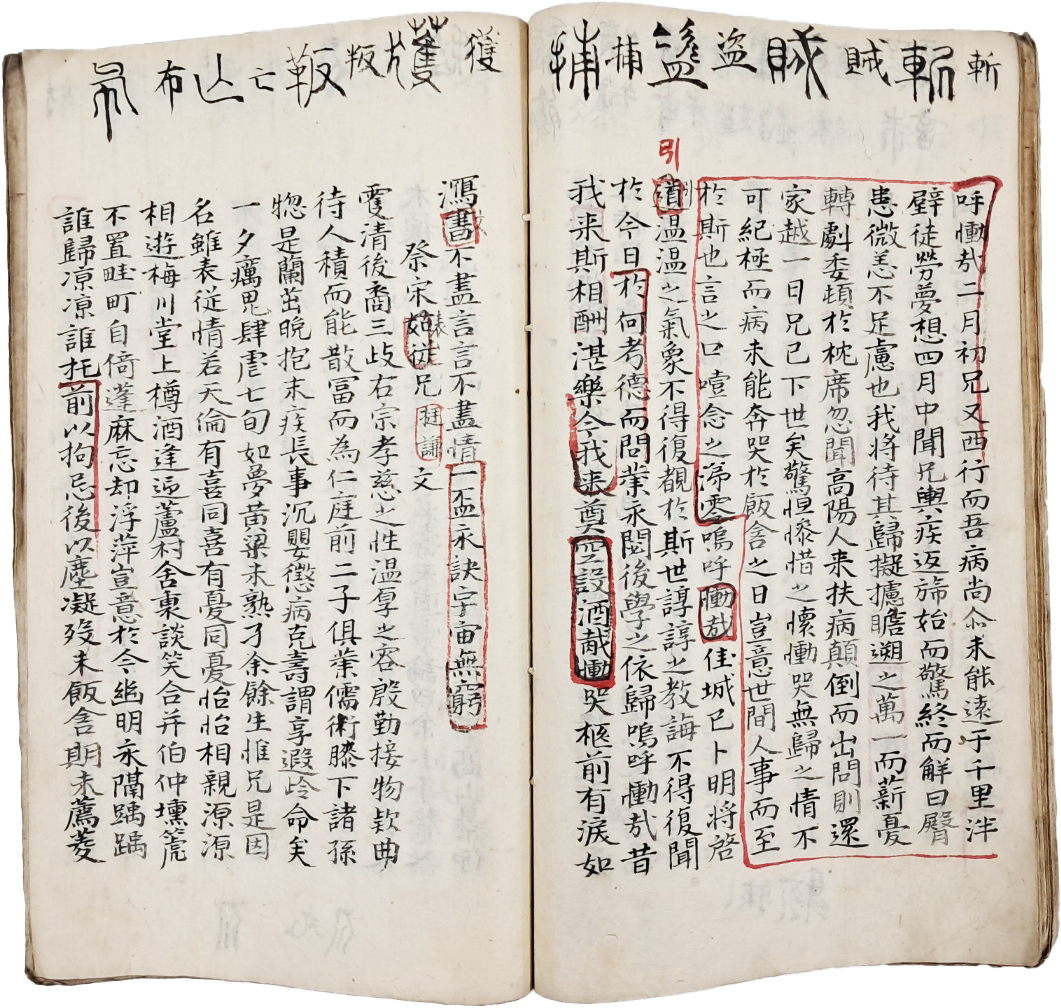 斬 斬 賊 賊 盜 盜 捕 捕
呼慟哉二月初兄又西行而吾病尚尒未能遠于千里泮
壁徒勞夢想四月中聞兄輿疾返旆始而驚終而解曰腎
患微恙不足慮也我將待其歸擬攄瞻遡之萬一而薪憂
轉劇委頓於枕席忽聞高陽人来扶病顛倒而出問則還
家越一日兄已下世矣驚怛慘惜之懷慟哭無歸之情不
可紀極而病未能奔哭於飯含之日豈意世間人事而至
於斯也言之口噎念之涕零嗚呼慟哉佳城已卜明將啓
引
遺温温之氣象不得復覩於斯世諄諄之教誨不得復聞
於今日於何考德而問業永閟後學之依歸嗚呼慟哉昔
我来斯相酬湛樂今我来奠空設酒胾慟哭柩前有淚如
獲 獲 叛 叛 亡 亡 布 布
瀉書不盡言言不盡情一盃永訣宇宙無窮
祭宋從兄挺謙文
霽清後裔三歧右宗孝慈之性温厚之容殷勤接物欵曲
待人積而能散富而為仁庭前二子俱業儒術膝下諸孫
揔是蘭茁晩抱末疾長事沉嬰懲病克壽謂享遐齡命矣
一夕癘鬼肆虐七旬如夢黃粱未熟孑余餘生惟兄是因
名雖表從情若天倫有喜同喜有憂同憂怡怡相親源源
相遊梅川堂上樽酒逢迎蘆村舍裏談笑合幷伯仲壎篪
不置畦町自倚蓬麻忘却浮萍豈意於今幽明永隔踽踽
誰歸凉凉誰托前以拘忌後以塵凝歿未飯含期未薦菱